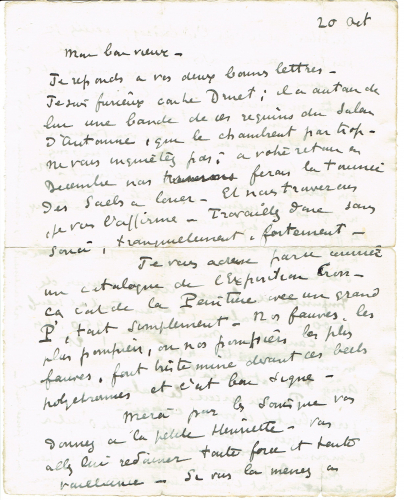 20 Oct
Mon bon vieux –
Je réponds à vos deux bonnes lettres –
Je suis furieux contre Druet ; il a autour de
lui une bande de ces requins du Salon
D'Automne, que le chambrent par trop –
ne vous inquiétez pas ; à votre retour en
Décembre nous ferons la tournée
des Salles à louer – Et nous trouverons
, je vous l'affirme – Travaillez donc sans
souci, tranquillement, fortement –
Je vous adresse par ce courrier
un catalogue de l'Exposition Cross –
ça c'est de la Peinture avec un grand
P, tout simplement – Nos fauves, les
plus pompiers, ou nos pompiers les plus
fauves, font triste mine devant ces belles
polychromes et c'est bon signe –
Merci pour les soins que vous
donnez à la petite Henriette – Vous
allez lui redonner toute force et toute
vaillance – Si vous la menez au